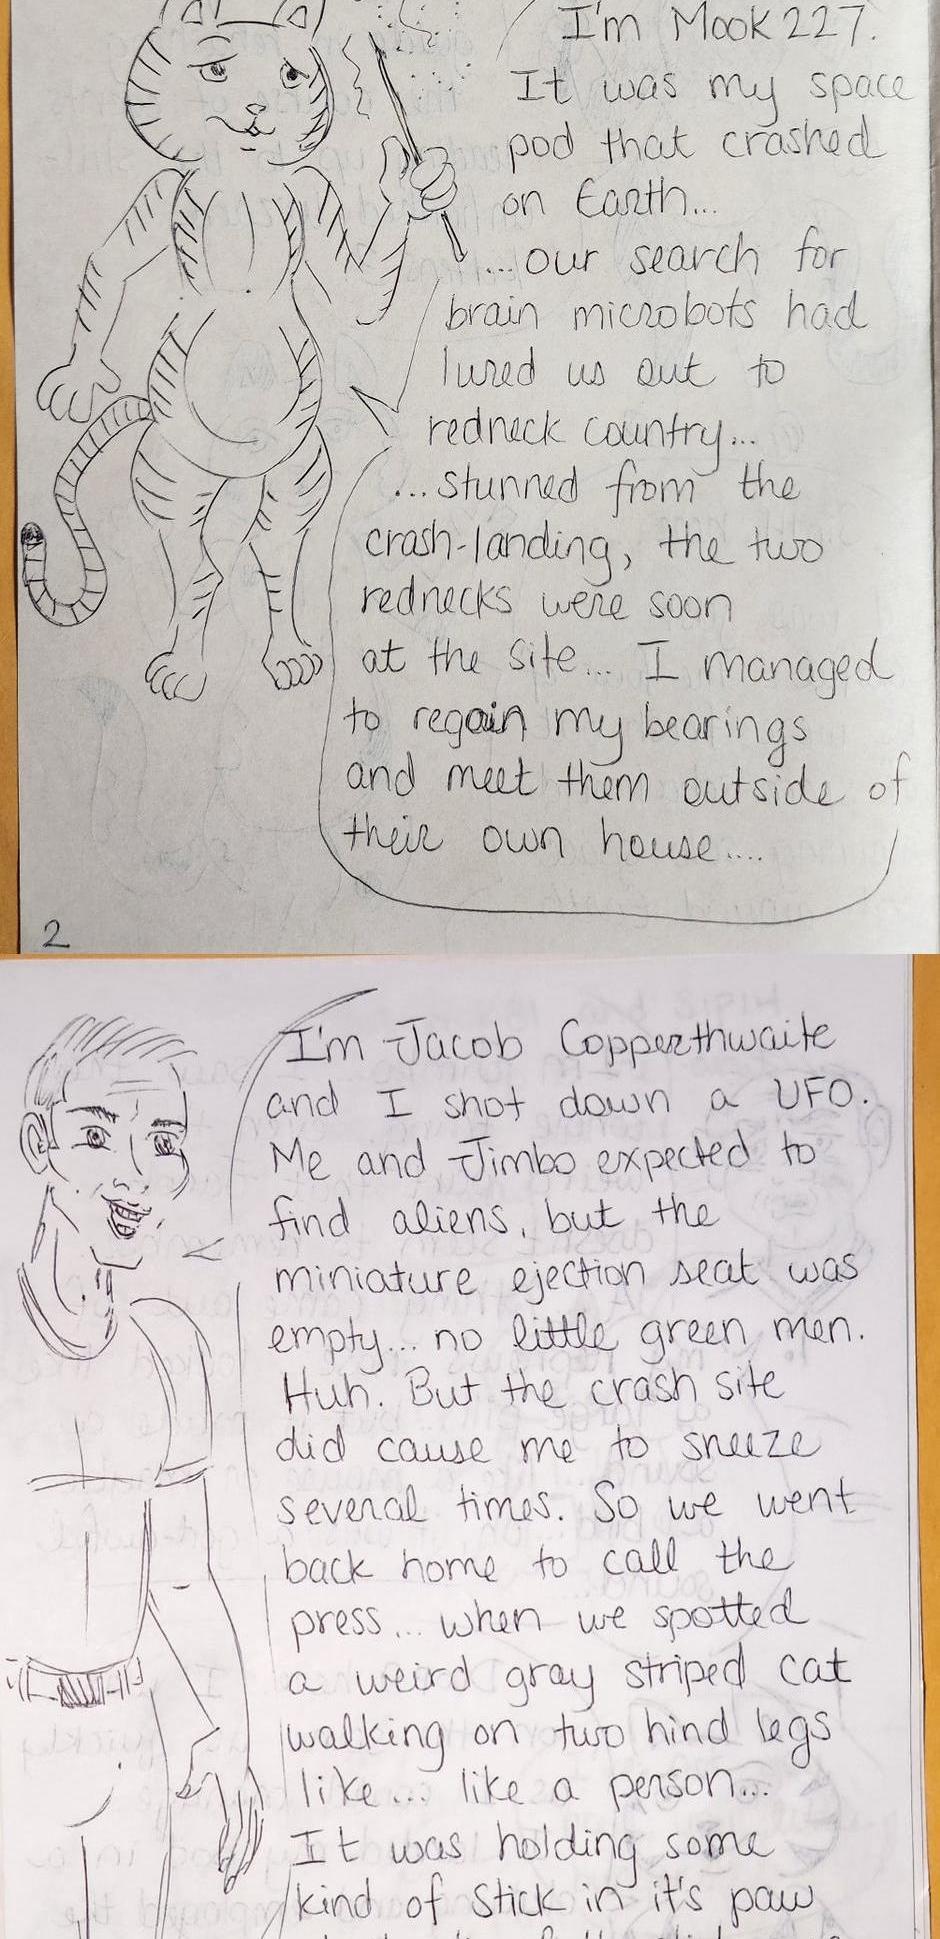 I'm Mook 227.
It was my space
pod that crashed
on Earth...
...our search for
brain microbots had
lured us out to
redneck country...
...stunned from the
crash-landing, the two
rednecks were soon
at the site... I managed
to regain my bearings
and meet them outside of
their own house....
2
I'm Jacob Copperthwaite
and I shot down a UFO.
Me and Jimbo expected to
find aliens, but the
miniature ejection seat was
empty... no little green men.
Huh. But the crash site
did cause me to sneeze
several times. So we went
back home to call the
press... when we spotted
a weird gray striped cat
walking on two hind legs
like... like a person...
It was holding some
kind of stick in it's paw